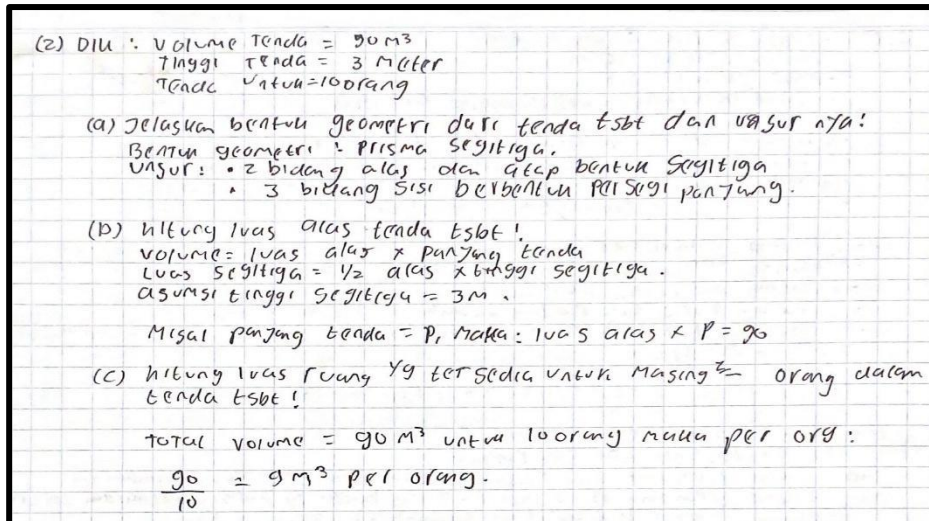 (2) DIK : Volume Tenda = 90 m³
Tinggi Tenda = 3 meter
Tenda Untuk = 10 orang
(a) Jelaskan bentuk geometri dari tenda tsbt dan unsur nya!
Bentuk geometri : Prisma segitiga.
Unsur : • 2 bidang alas dan atap bentuk segitiga
• 3 bidang sisi berbentuk persegi panjang.
(b) hitung luas alas tenda tsbt !
volume = luas alas x panjang tenda
Luas segitiga = 1/2 alas x tinggi segitiga.
asumsi tinggi segitiga = 3 m.
Misal panjang tenda = P, maka : luas alas x P = 90
(c) hitung luas ruang yg tersedia untuk masing²- orang dalam
tenda tsbt !
TOTAL volume = 90 m³ untuk 10 orang maka per org :
90/10 = 9 m³ per orang.